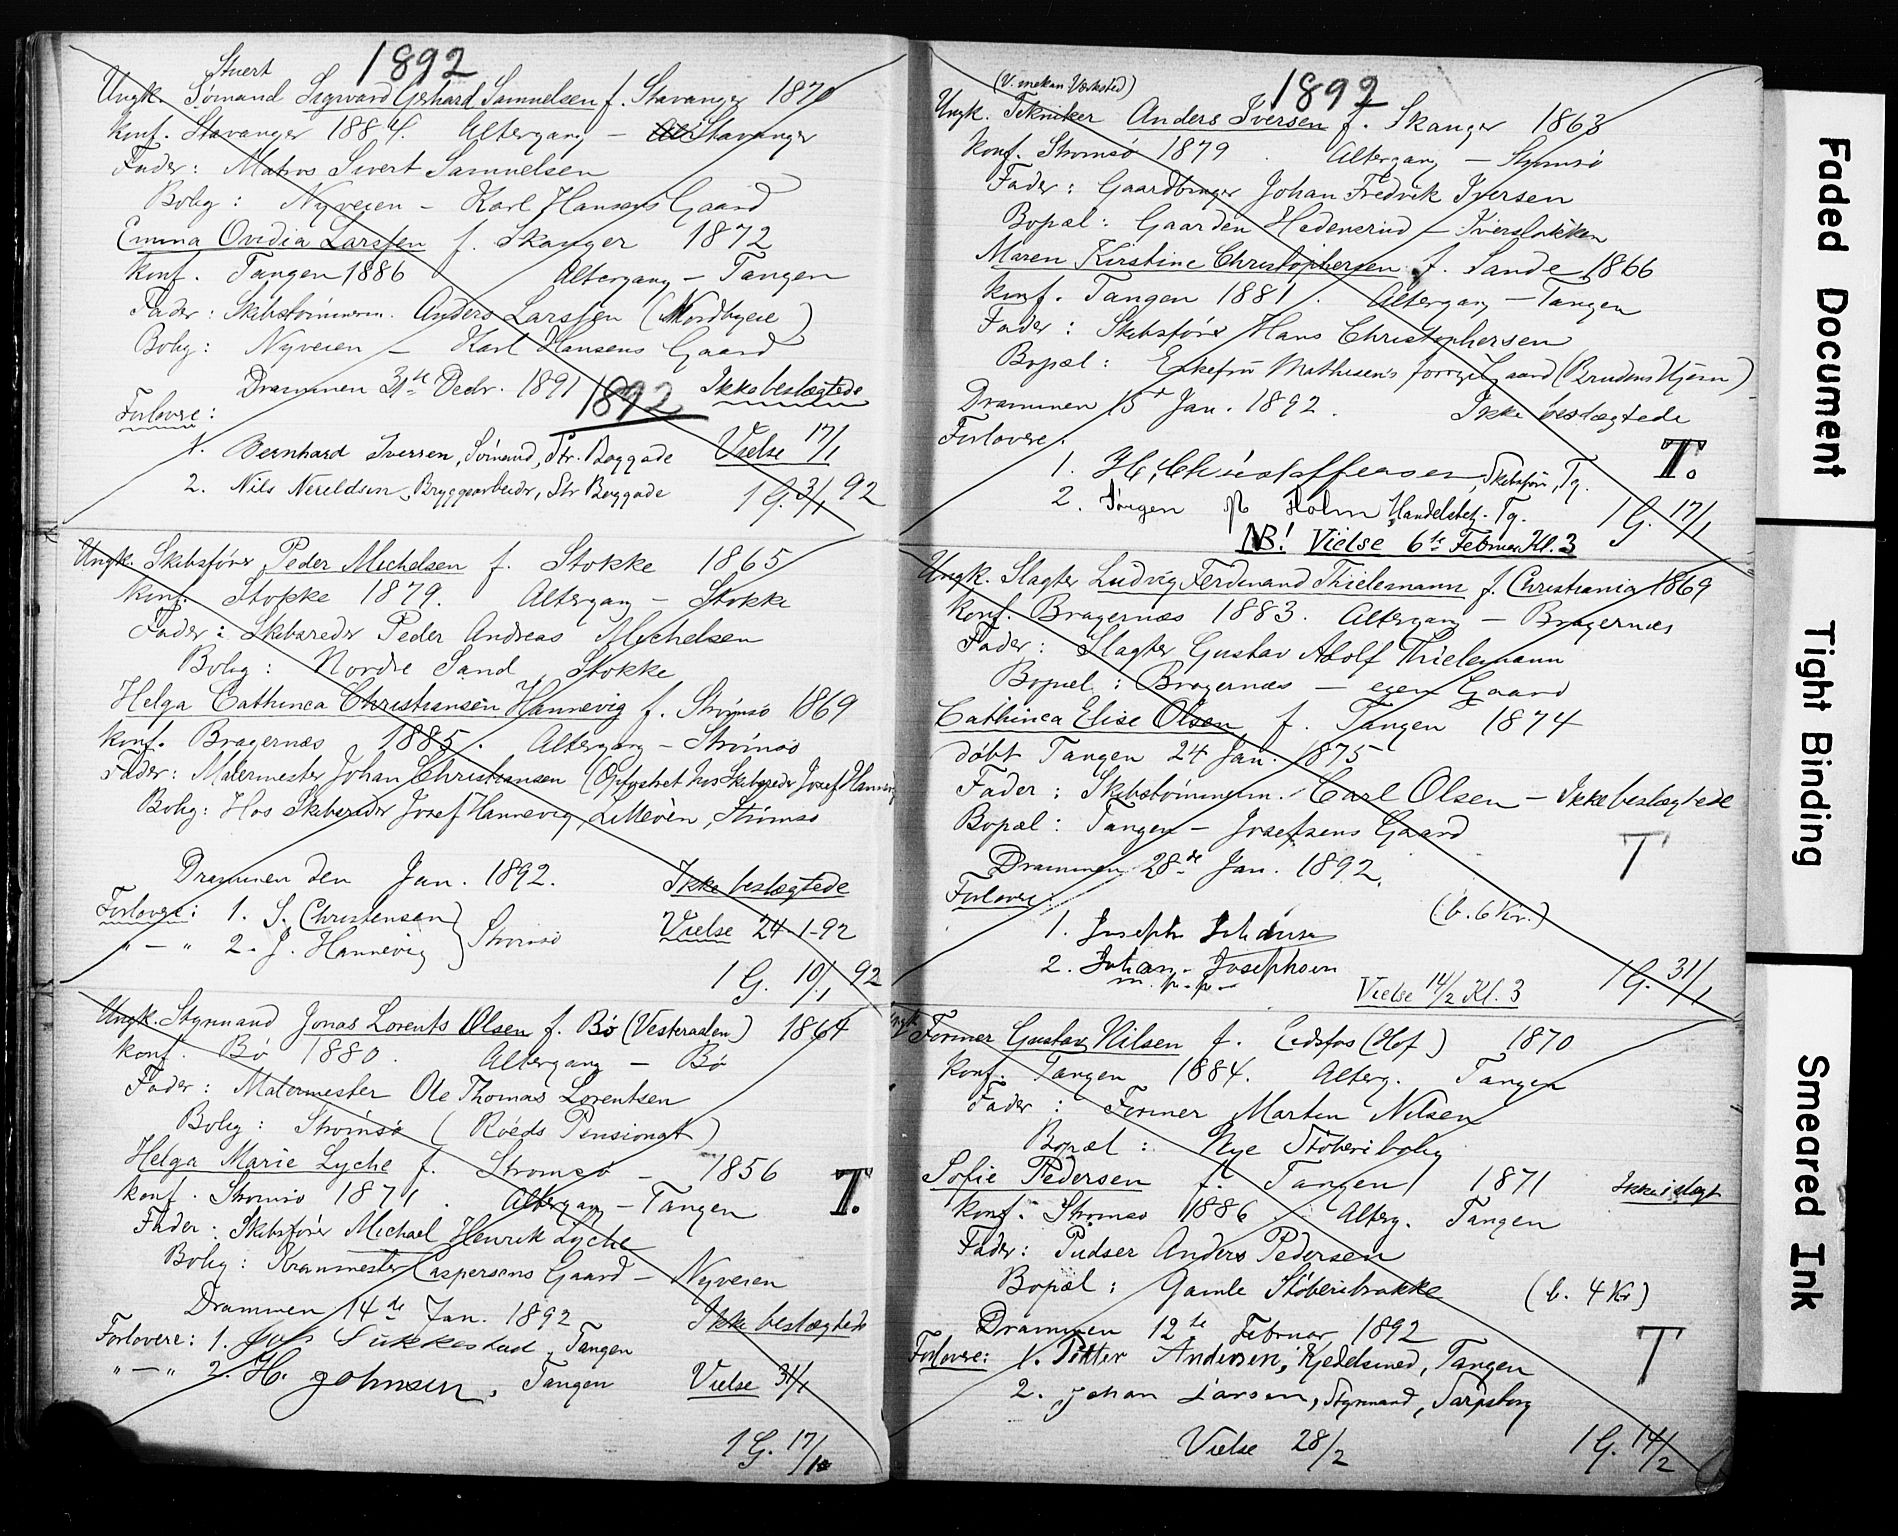 1892
Stuert
Ungk. Sømand Sigward Gerhard Samuelsen f. Stavanger 1870
Konf. Stavanger 1884. Altergang – Stavanger
Fader: Matros Sivert Samuelsen
Bolig: Nyveien – Karl Hansens Gaard
Emma Ovidia Larssen f. Skanger 1872
Konf. Tangen 1886 Altergang – Tangen
Fader: Skibstømmerm. Anders Larssen (Nordbyeie)
Bolig: Nyveien – Karl Hansens Gaard
Drammen 31te Decbr. 1891 Ikke beslægtede
1892
Forlovere:
1. Bernhard Iversen, Sømand, Str. Baggade Vielse 17/1
2. Nils Nereldsen, Bryggearbeidr, Str Baggade 1 G. 3/1 92
Ungk. Skibsfører Peder Michelsen f. Stokke 1865
Konf. Stokke 1879. Altergang – Stokke
Fader: Skibsreder Peder Andreas Michelsen
Bolig: Nordre Sand, Stokke
Helga Cathinca Christiansen Hannevig f. Strømsø 1869
Konf. Bragernæs 1885. Altergang – Strømsø
Fader: Malermester Johan Christiansen (Opfostret hos Skibsreder Josef Hannevig
Bolig: Hos Skibsreder Josef Hannevig, Lilleveien, Strømsø
Drammen den Jan. 1892. Ikke beslægtede
Forlovere: 1. S. Christensen
" – " 2. J. Hannevig } Strømsø Vielse 24-1-92
1 G. 10/1 92
Ungk. Styrmand Jonas Lorents Olsen f. Bø (Vesteraalen) 1864
Konf. Bø 1880. Altergang – Bø
Fader: Malermester Ole Thomas Lorentsen
Bolig: Strømsø (Røeds Pensionat)
Helga Marie Lyche f. Strømsø – 1856
Konf. Strømsø 1871. Altergang – Tangen T.
Fader: Skibsfører Michael Henrik Lyche
Bolig: Kranmester Caspersens Gaard – Nyveien
Drammen 14de Jan. 1892 Ikke beslægtede
Forlovere: 1. Sukkestad, Tangen
" – " 2. H. Johnsen, Tangen Vielse 31/1
1 G. 17/1
1892
(V. mekan Værksted)
Ungk. Tekniker Anders Iversen f. Skanger 1863
Konf. Strømsø 1879. Altergang – Strømsø
Fader: Gaardbruger Johan Fredrik Iversen
Bopæl: Gaarden Hedenerud – Iversløkken
Maren Kirstine Christophersen f. Sande 1866
Konf. Tangen 1881. Altergang – Tangen
Fader: Skibsfører Hans Christophersen
Bopæl: Enkefru Mathisen's forrige Gaard (Brudens Hjem)
Drammen 15de Jan. 1892. Ikke beslægtede
Forlovere: T.
1. H. Christoffersen, Skibsfører, Tg.
2. Jørgen Holm Handelsbetj. Tg. 1 G. 17/1
NB! Vielse 6te Februar Kl. 3
Ungk. Slagter Ludvig Ferdinand Thielemann f. Christiania 1869
Konf. Bragernæs 1883. Altergang – Bragernæs
Fader: Slagter Gustav Adolf Thielemann
Bopæl: Bragernæs – egen Gaard
Cathinca Elise Olsen f. Tangen 1874
døbt Tangen 24 Jan. 1875
Fader: Skibstømmerm. Carl Olsen – Ikke beslægtede
Bopæl: Tangen – Josefsens Gaard T
Drammen 28de Jan. 1892.
Forlovere: (b. 6 Kr.)
1. Joseph Johansen
2. Johan Josephsen
m. p. p. 1 G. 31/1
Vielse 14/2 Kl. 3
Ungk. Former Gustav Nilsen f. Eidsfos (Hof) 1870
Konf. Tangen 1884. Alterg. Tangen
Fader: Former Martin Nilsen
Bopæl: Nye Støberibolig
Sofie Pedersen f. Tangen 1871 Ikke i slægt
Konf. Strømsø 1886. Alterg. Tangen
Fader: Pudser Anders Pedersen
Bopæl: Gamle Støberibrakke (b. 4 Kr)
Drammen 12te Februar 1892 T
Forlovere: 1. Petter Andersen, Kjedelsmed, Tangen
2. Johan Larsen, Styrmand, Sarpsborg
Vielse 28/2 1 G. 14/2
Faded Document
Tight Binding
Smeared Ink